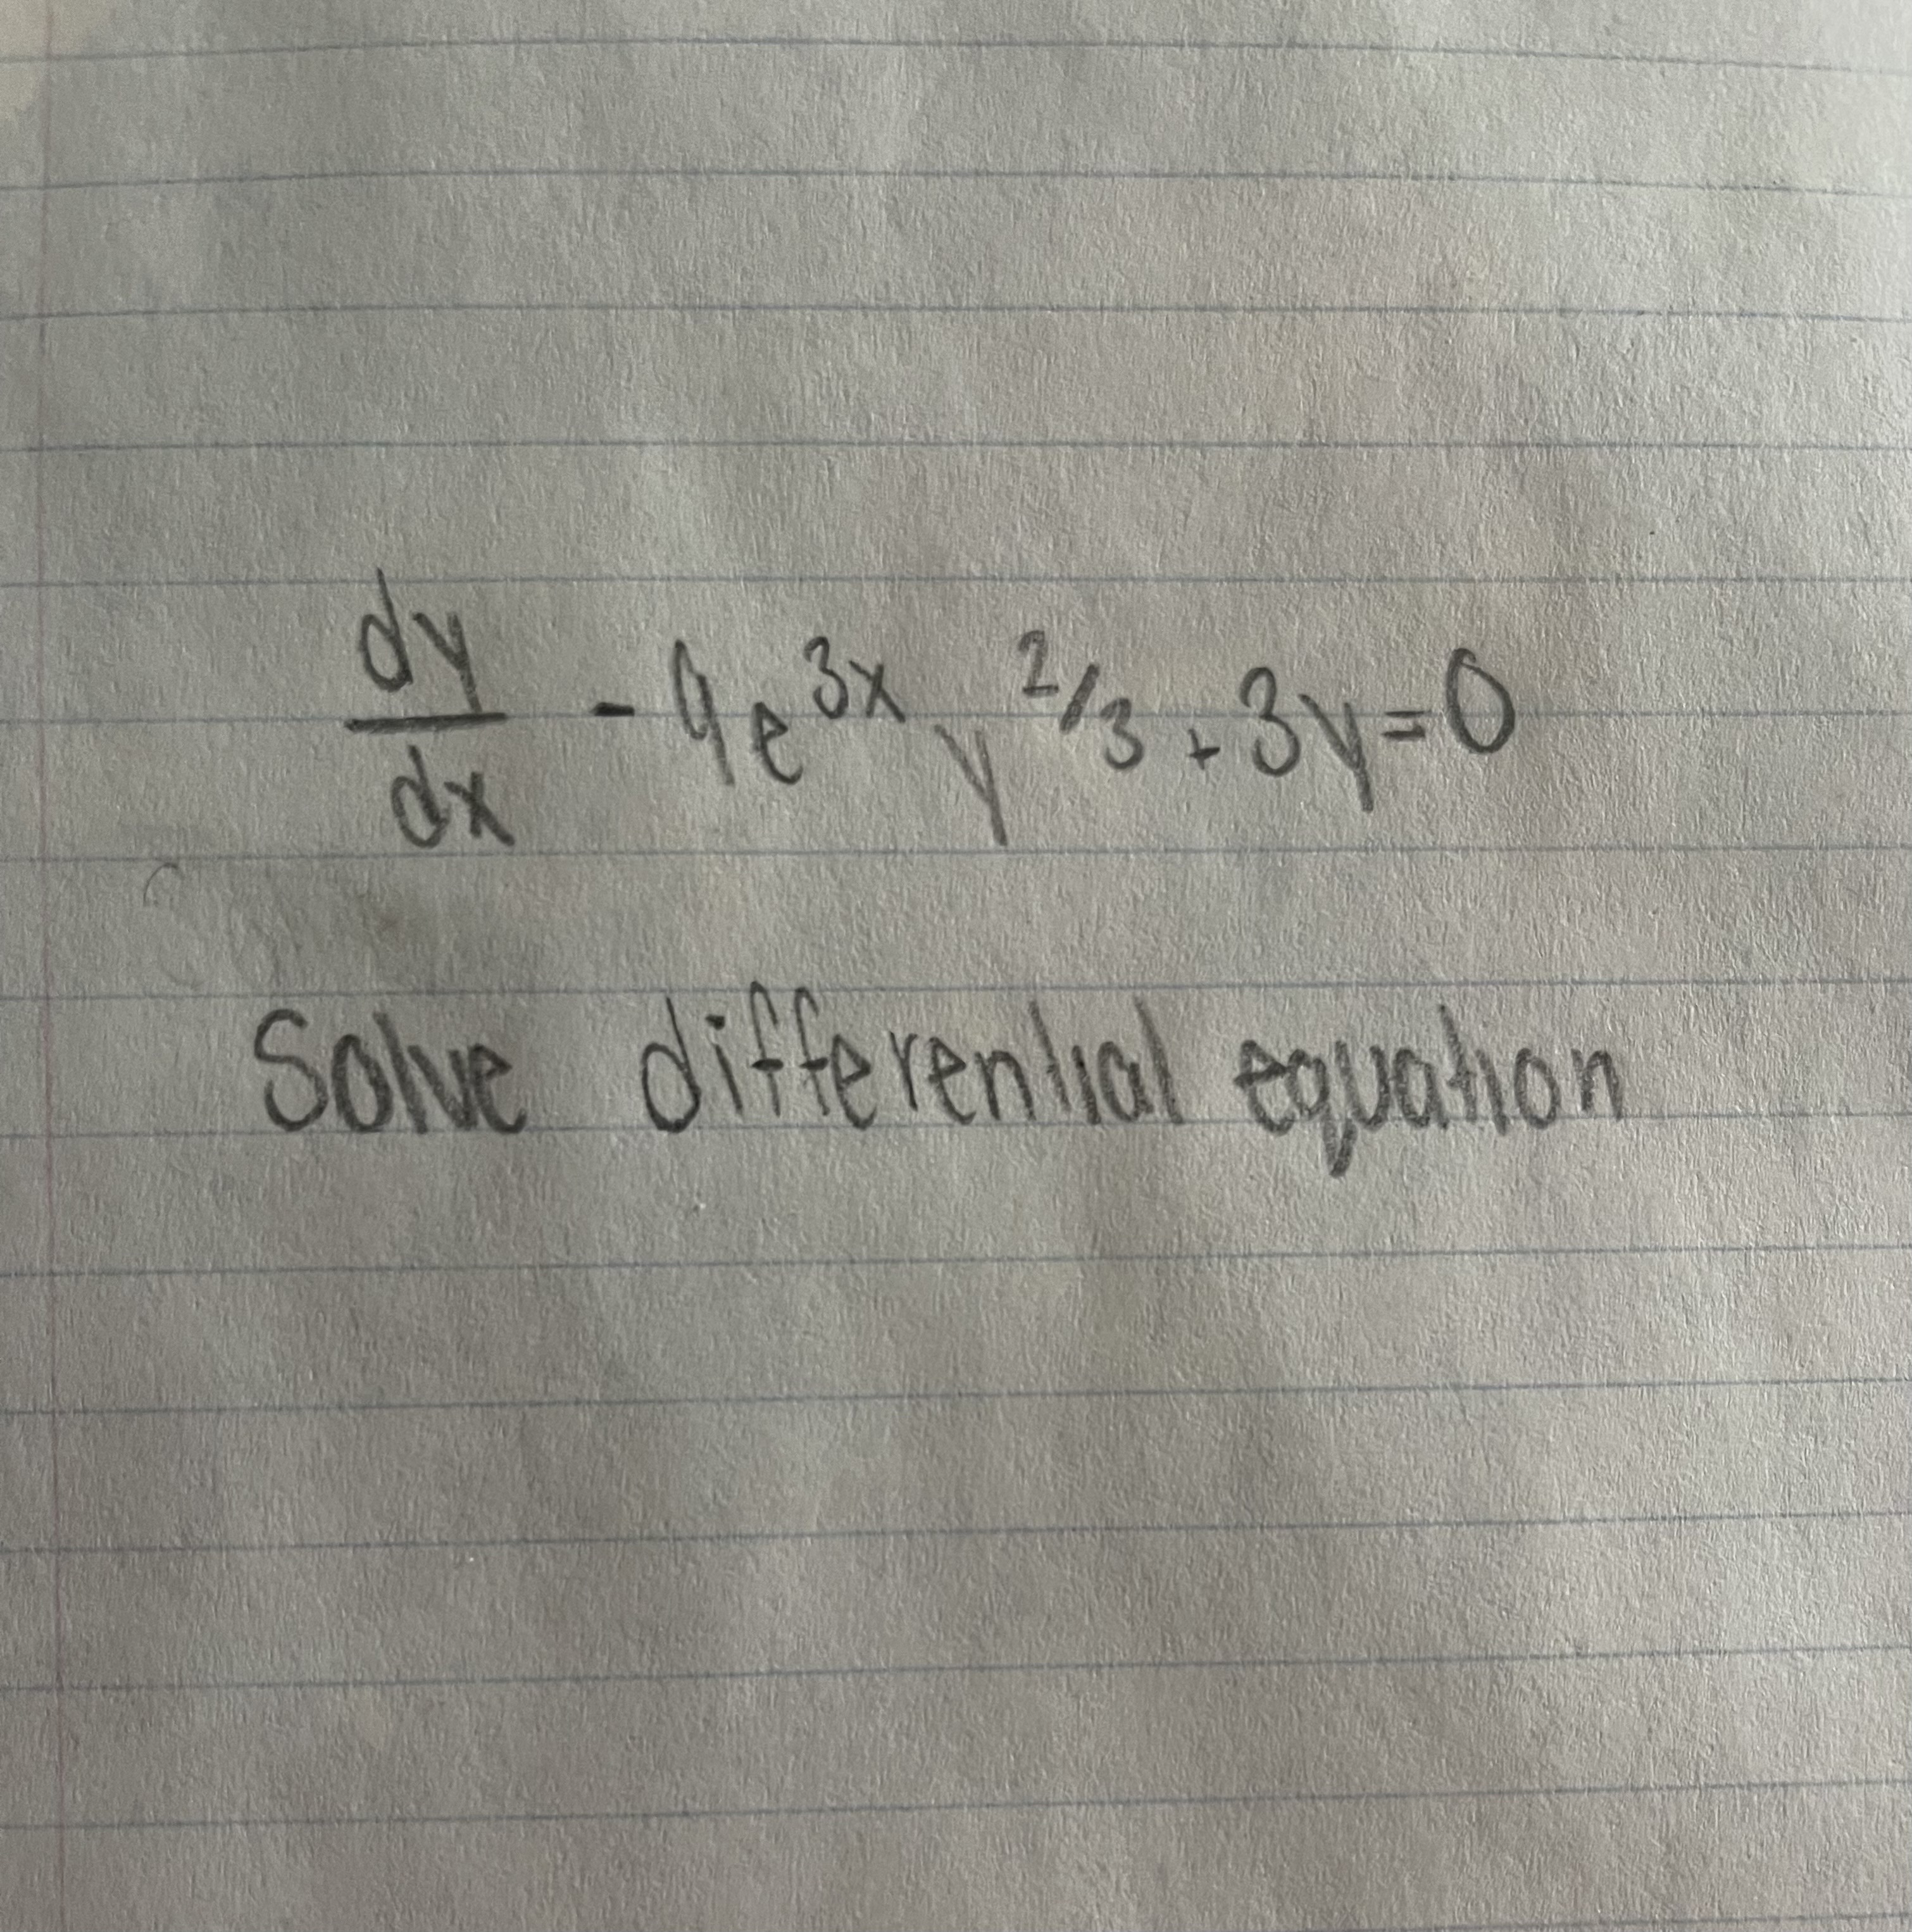 dy/dx - 9e^{3x} y^{2/3} + 3y = 0
Solve differential equation